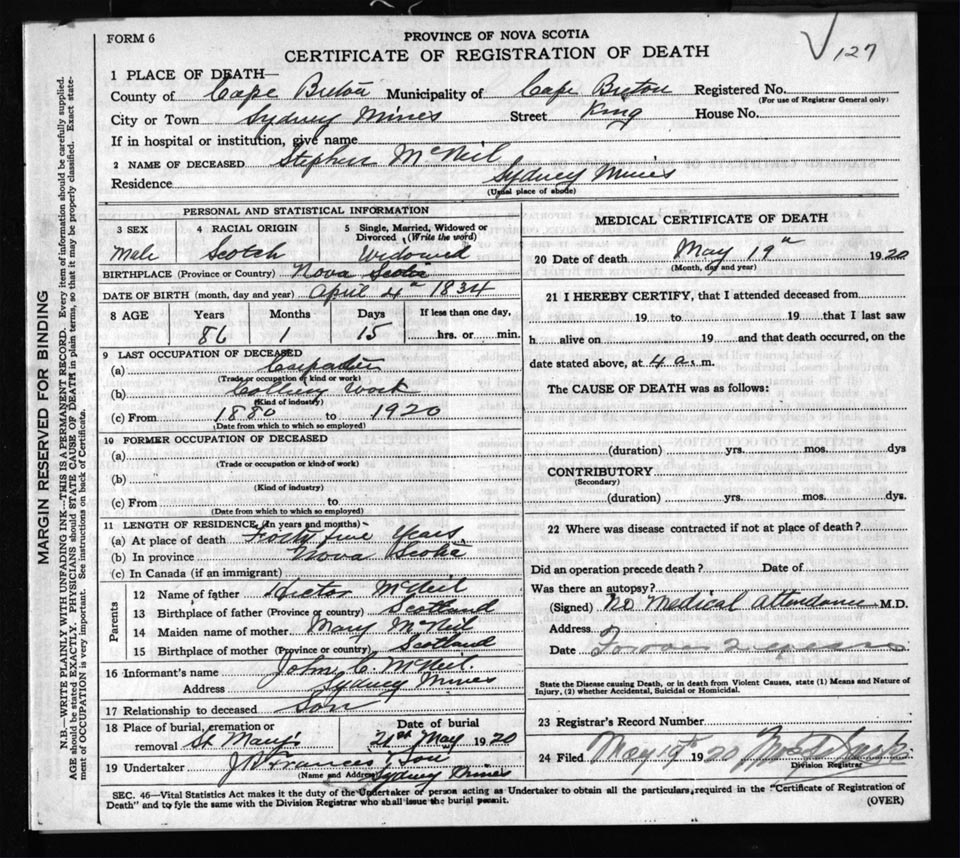 FORM 6
PROVINCE OF NOVA SCOTIA
CERTIFICATE OF REGISTRATION OF DEATH
127
1 PLACE OF DEATH—
County of Cape Breton Municipality of Cape Breton Registered No.
(For use of Registrar General only)
City or Town Sydney Mines Street King House No.
If in hospital or institution, give name
2 NAME OF DECEASED Stephen McNeil
Residence Sydney Mines
(Usual place of abode)
PERSONAL AND STATISTICAL INFORMATION
3 SEX 4 RACIAL ORIGIN 5 Single, Married, Widowed or Divorced (Write the word)
Male Scotch Widowed
BIRTHPLACE (Province or Country) Nova Scotia
DATE OF BIRTH (month, day and year) April 4th 1834
8 AGE Years Months Days If less than one day,
86 1 15 hrs. or min.
9 LAST OCCUPATION OF DECEASED
(a) Carpenter
(Trade or occupation or kind or work)
(b) Colliery Work
(Kind of industry)
(c) From 1880 to 1920
(Date from which to which so employed)
10 FORMER OCCUPATION OF DECEASED
(a)
(Trade or occupation or kind of work)
(b)
(Kind of industry)
(c) From to
(Date from which to which so employed)
11 LENGTH OF RESIDENCE (In years and months)—
(a) At place of death Forty five Years
(b) In province Nova Scotia
(c) In Canada (if an immigrant)
Parents
12 Name of father Hector McNeil
13 Birthplace of father (Province or country) Scotland
14 Maiden name of mother Mary McNeil
15 Birthplace of mother (Province or country) Scotland
16 Informant's name John C. McNeil
Address Sydney Mines
17 Relationship to deceased Son
18 Place of burial, cremation or removal St Mary's
Date of burial 21st May 1920
19 Undertaker J Frances & Son
(Name and Address) Sydney Mines
MEDICAL CERTIFICATE OF DEATH
20 Date of death May 19th 1920
(Month, day and year)
21 I HEREBY CERTIFY, that I attended deceased from
19 to 19 that I last saw
h alive on 19 and that death occurred, on the
date stated above, at 4 a.m.
The CAUSE OF DEATH was as follows:
(duration) yrs. mos. dys
CONTRIBUTORY
(Secondary)
(duration) yrs. mos. dys.
22 Where was disease contracted if not at place of death?
Did an operation precede death? Date of
Was there an autopsy?
(Signed) No Medical Attendance M.D.
Address
Date
State the Disease causing Death, or in death from Violent Causes, state (1) Means and Nature of
Injury, (2) whether Accidental, Suicidal or Homicidal.
23 Registrar's Record Number
24 Filed May 19th 1920
Division Registrar
SEC. 46—Vital Statistics Act makes it the duty of the Undertaker or person acting as Undertaker to obtain all the particulars required in the "Certificate of Registration of
Death" and to fyle the same with the Division Registrar who shall issue the burial permit.
(OVER)
MARGIN RESERVED FOR BINDING
N.B.—WRITE PLAINLY WITH UNFADING INK—THIS IS A PERMANENT RECORD. Every item of information should be carefully supplied.
AGE should be stated EXACTLY. PHYSICIANS should STATE CAUSE OF DEATH in plain terms, so that it may be properly classified. Exact state-
ment of OCCUPATION is very important. See instructions on back of Certificate.